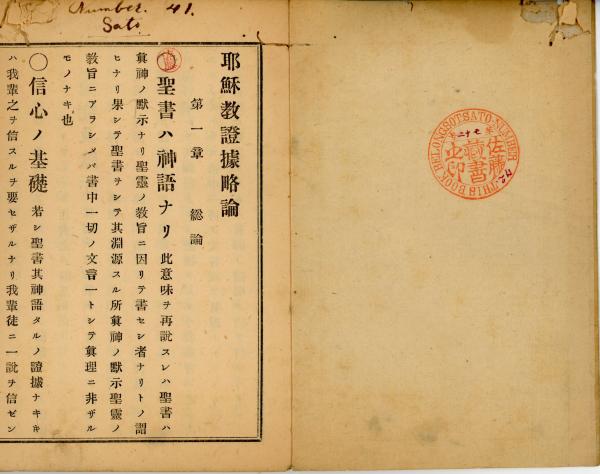 THIS BOOK BELONGS TO SATO. NUMBER 24
佐藤
藏書
之印
Number. 41.
Sato
耶穌教證據略論
第一章 総論
〇聖書ハ神語ナリ 此意味ヲ再説スレハ聖書ハ
眞神ノ默示ナリ聖靈ノ教旨ニ因リテ書セシ者ナリトノ謂
ヒナリ果シテ聖書ヲシテ其淵源スル所眞神ノ默示聖靈ノ
教旨ニアラシメバ書中一切ノ文言一トシテ眞理ニ非ザル
モノナキ也
〇信心ノ基礎 若シ聖書其神語タルノ證據ナキキ
ハ我輩之ヲ信スルヲ要セザルナリ我輩徒ニ一説ヲ信ゼン